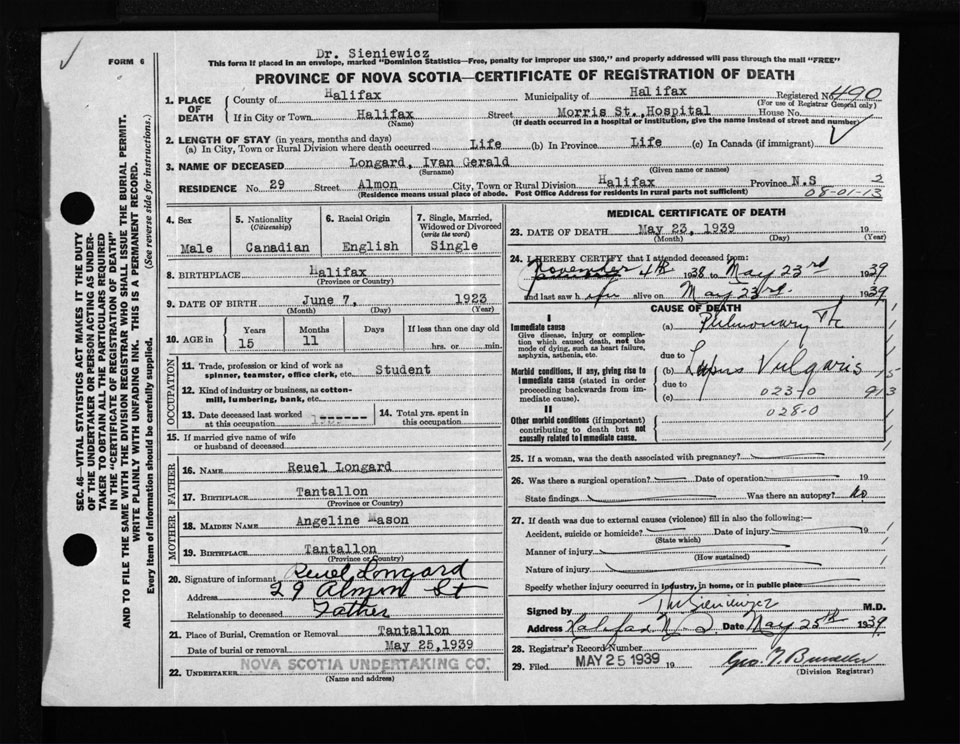 Dr. Sieniewicz
FORM 6
This form if placed in an envelope, marked "Dominion Statistics—Free, penalty for improper use $300," and properly addressed will pass through the mail "FREE"
PROVINCE OF NOVA SCOTIA—CERTIFICATE OF REGISTRATION OF DEATH
1. PLACE OF DEATH
County of Halifax Municipality of Halifax Registered No. 490
(For use of Registrar General only)
If in City or Town Halifax Street Morris St., Hospital House No.
(Name) (If death occurred in a hospital or institution, give the name instead of street and number)
2. LENGTH OF STAY (in years, months and days)
(a) In City, Town or Rural Division where death occurred Life (b) In Province Life (c) In Canada (if immigrant)
3. NAME OF DECEASED Longard, Ivan Gerald
(Surname) (Given name or names)
RESIDENCE No. 29 Street Almon City, Town or Rural Division Halifax Province N.S 2
(Residence means usual place of abode. Post Office Address for residents in rural parts not sufficient) 08-01-13
4. Sex Male
5. Nationality (Citizenship) Canadian
6. Racial Origin English
7. Single, Married, Widowed or Divorced (write the word) Single
8. BIRTHPLACE Halifax
(Province or Country)
9. DATE OF BIRTH June 7, 1923
(Month) (Day) (Year)
10. AGE in Years 15 Months 11 Days If less than one day old hrs. or min.
OCCUPATION
11. Trade, profession or kind of work as spinner, teamster, office clerk, etc. Student
12. Kind of industry or business, as cotton-mill, lumbering, bank, etc.
13. Date deceased last worked at this occupation
14. Total yrs. spent in this occupation
15. If married give name of wife or husband of deceased
FATHER
16. NAME Reuel Longard
17. BIRTHPLACE Tantallon
(Province or Country)
MOTHER
18. MAIDEN NAME Angeline Mason
19. BIRTHPLACE Tantallon
(Province or Country)
20. Signature of informant Reuel Longard
Address 29 Almon St
Relationship to deceased Father
21. Place of Burial, Cremation or Removal Tantallon
Date of burial or removal May 25, 1939
22. UNDERTAKER NOVA SCOTIA UNDERTAKING CO.
(Name and address)
MEDICAL CERTIFICATE OF DEATH
23. DATE OF DEATH May 23, 1939 19
(Month) (Day) (Year)
24. I HEREBY CERTIFY that I attended deceased from:
November 4th 1938 to May 23rd 1939
and last saw him alive on May 23rd. 1939
CAUSE OF DEATH
I
Immediate cause
Give disease, injury or complication which caused death, not the mode of dying, such as heart failure, asphyxia, asthenia, etc.
(a) Pulmonary Tb
due to
Morbid conditions, if any, giving rise to immediate cause (stated in order proceeding backwards from immediate cause).
(b) Lupus Vulgaris 15
due to 023-0 913
(c)
028-0
II
Other morbid conditions (if important) contributing to death but not causally related to immediate cause.
25. If a woman, was the death associated with pregnancy?
26. Was there a surgical operation? Date of operation 19
State findings Was there an autopsy? No
27. If death was due to external causes (violence) fill in also the following:—
Accident, suicide or homicide? Date of injury 19
(State which)
Manner of injury
(How sustained)
Nature of injury
Specify whether injury occurred in industry, in home, or in public place
Signed by Sieniewicz M.D.
Address Halifax N.S. Date May 25th 1939
28. Registrar's Record Number
29. Filed MAY 25 1939 19
(Division Registrar)
SEC. 46—VITAL STATISTICS ACT MAKES IT THE DUTY
OF THE UNDERTAKER OR PERSON ACTING AS UNDER-
TAKER "TO OBTAIN ALL THE PARTICULARS REQUIRED
IN THE "CERTIFICATE OF REGISTRATION OF DEATH"
AND TO FILE THE SAME WITH THE DIVISION REGISTRAR WHO SHALL ISSUE THE BURIAL PERMIT.
WRITE PLAINLY WITH UNFADING INK. THIS IS A PERMANENT RECORD.
Every item of information should be carefully supplied. (See reverse side for instructions.)